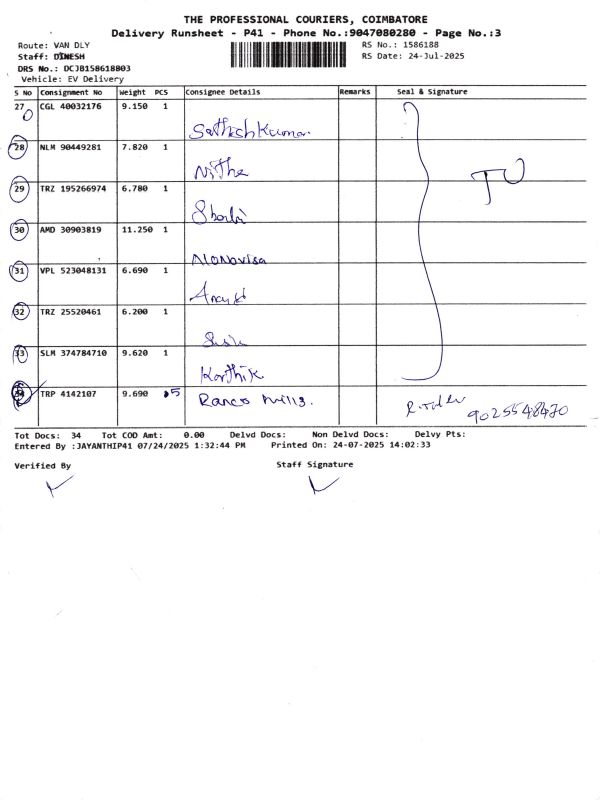 THE PROFESSIONAL COURIERS, COIMBATORE
Delivery Runsheet - P41 - Phone No.:9047080280 - Page No.:3
Route: VAN DLY
RS No.: 1586188
Staff: DINESH
RS Date: 24-Jul-2025
DRS No.: DCJB158618803
Vehicle: EV Delivery
S No Consignment No Weight PCS Consignee Details Remarks Seal & Signature
27 CGL 40032176 9.150 1
Sathish Kumar
28 NLM 90449281 7.820 1
Nithe
29 TRZ 195266974 6.780 1
30 AMD 30903819 11.250 1
31 VPL 523048131 6.690 1
32 TRZ 25520461 6.200 1
33 SLM 374784710 9.620 1
Karthik
34 TRP 4142107 9.690 5 Ranco Mills.
9025548470
Tot Docs: 34 Tot COD Amt: 0.00 Delvd Docs: Non Delvd Docs: Delvy Pts:
Entered By :JAYANTHIP41 07/24/2025 1:32:44 PM Printed On: 24-07-2025 14:02:33
Verified By Staff Signature